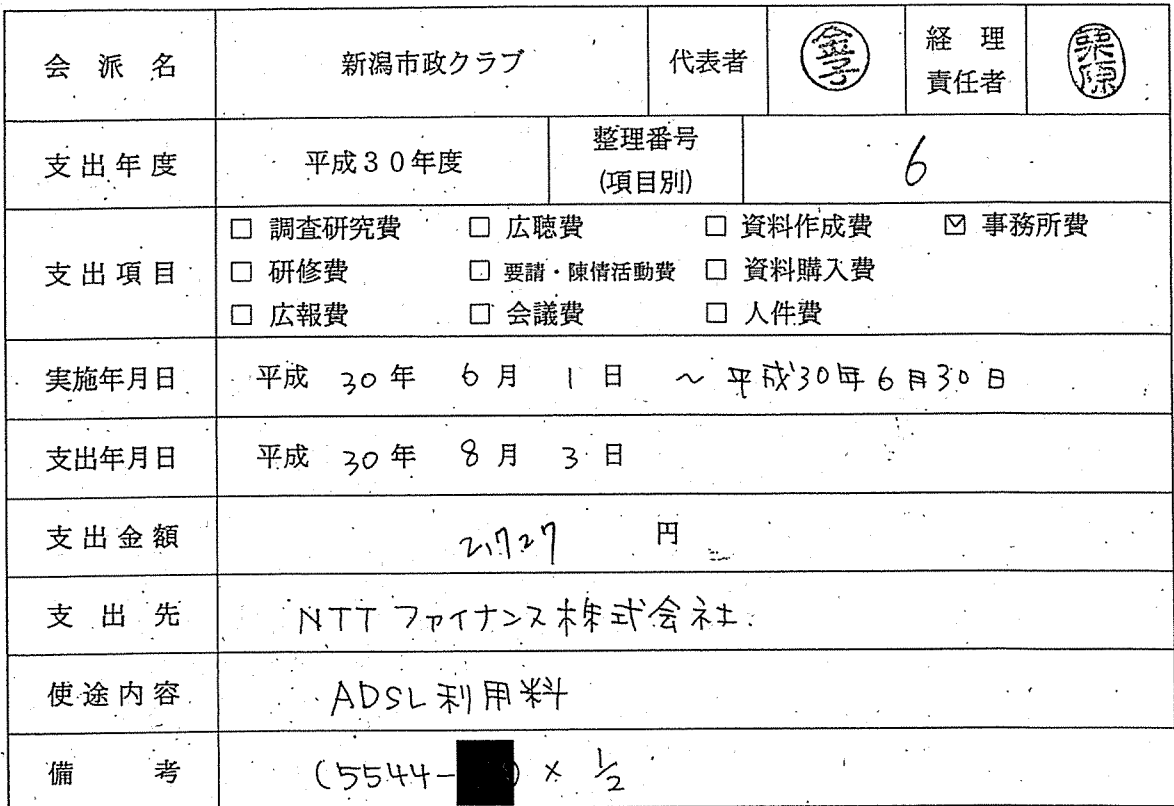 会派名 新潟市政クラブ 代表者 金子 経理責任者
支出年度 平成30年度 整理番号(項目別) 6
支出項目
□ 調査研究費 □ 広聴費 □ 資料作成費 ☑ 事務所費
□ 研修費 □ 要請・陳情活動費 □ 資料購入費
□ 広報費 □ 会議費 □ 人件費
実施年月日 平成 30年 6月 1日 ~ 平成30年6月30日
支出年月日 平成 30年 8月 3日
支出金額 2,727 円
支出先 NTTファイナンス株式会社.
使途内容 ADSL利用料
備考 (5544-) × 1/2